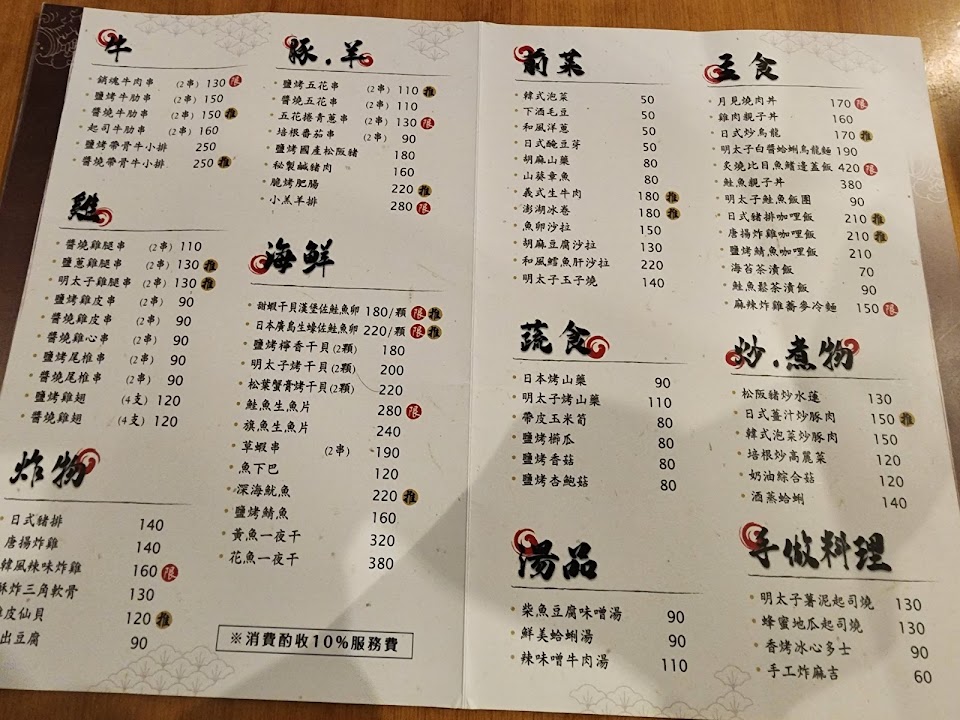 牛
銷魂牛肉串 (2串) 130 限
鹽烤牛肋串 (2串) 150
醬燒牛肋串 (2串) 150 推
起司牛肋串 (2串) 160
鹽烤帶骨牛小排 250
醬燒帶骨牛小排 250 推
雞
醬燒雞腿串 (2串) 110
鹽蔥雞腿串 (2串) 130 推
明太子雞腿串 (2串) 130 推
鹽烤雞皮串 (2串) 90
醬燒雞皮串 (2串) 90
醬燒雞心串 (2串) 90
鹽烤尾椎串 (2串) 90
醬燒尾椎串 (2串) 90
鹽烤雞翅 (4支) 120
醬燒雞翅 (4支) 120
炸物
日式豬排 140
唐揚炸雞 140
韓風辣味炸雞 160 限
酥炸三角軟骨 130
雞皮仙貝 120 推
出豆腐 90
豚.羊
鹽烤五花串 (2串) 110 推
醬燒五花串 (2串) 110
五花捲青蔥串 (2串) 130 限
培根番茄串 (2串) 90
鹽烤國產松阪豬 180
秘製鹹豬肉 160
脆烤肥腸 220 推
小羔羊排 280 限
海鮮
甜蝦干貝漢堡佐鮭魚卵 180/顆 限 推
日本廣島生蠔佐鮭魚卵 220/顆 限 推
鹽烤檸香干貝(2顆) 180
明太子烤干貝(2顆) 200
松葉蟹膏烤干貝(2顆) 220
鮭魚生魚片 280 限
旗魚生魚片 240
草蝦串 (2串) 190
魚下巴 120
深海魷魚 220 推
鹽烤鯖魚 160
黃魚一夜干 320
花魚一夜干 380
※消費酌收10%服務費
前菜
韓式泡菜 50
下酒毛豆 50
和風洋蔥 50
日式醃豆芽 50
胡麻山藥 80
山葵章魚 80
義式生牛肉 180 推
澎湖冰卷 180 推
魚卵沙拉 150
胡麻豆腐沙拉 130
和風鱈魚肝沙拉 220
明太子玉子燒 140
蔬食
日本烤山藥 90
明太子烤山藥 110
帶皮玉米筍 80
鹽烤櫛瓜 80
鹽烤香菇 80
鹽烤杏鮑菇 80
湯品
柴魚豆腐味噌湯 90
鮮美蛤蜊湯 90
辣味噌牛肉湯 110
主食
月見燒肉丼 170 限
雞肉親子丼 160
日式炒烏龍 170 推
明太子白醬蛤蜊烏龍麵 190
炙燒比目魚鰭邊蓋飯 420 限
鮭魚親子丼 380
明太子鮭魚飯團 90
日式豬排咖哩飯 210 推
唐揚炸雞咖哩飯 210 推
鹽烤鯖魚咖哩飯 210
海苔茶漬飯 70
鮭魚鬆茶漬飯 90
麻辣炸雞蕎麥冷麵 150 限
炒.煮物
松阪豬炒水蓮 130
日式薑汁炒豚肉 150 推
韓式泡菜炒豚肉 150
培根炒高麗菜 120
奶油綜合菇 120
酒蒸蛤蜊 140
手做料理
明太子薯泥起司燒 130
蜂蜜地瓜起司燒 130
香烤冰心多士 90
手工炸麻吉 60